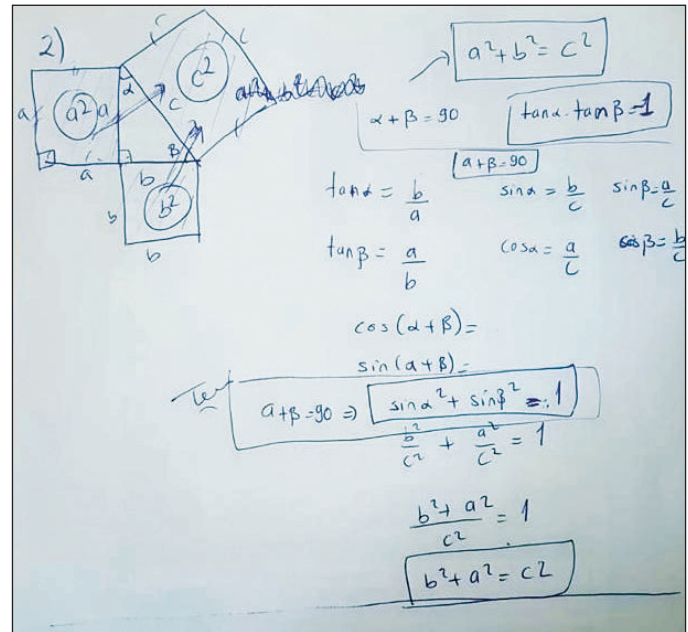 2)
c c
c²
a a² a α c
a b β
b b²
b
a² + b² = c²
α + β = 90 tanα · tanβ = 1
a+β = 90
tanα = b/a sinα = b/c sinβ = a/c
tanβ = a/b cosα = a/c cosβ = b/c
cos(α + β) =
sin(α + β) =
a+β = 90 ⇒ sinα² + sinβ² = 1
b²/c² + a²/c² = 1
b² + a²/c² = 1
b² + a² = c2